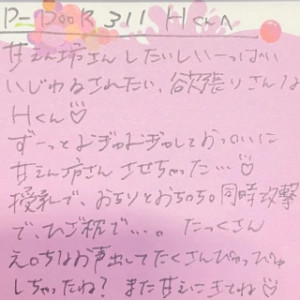 P-DOOR 311 Hくんへ
甘えん坊さんしたいしいーっぱい
いじわるされたい、欲張りさんな
Hくん♡
ずーっとよぎゅよぎゅしておっぱいに
甘えん坊さん させちゃった…♡
授乳で、おちりとおちんち。同時攻撃
で、ひざ枕で…。たっくさん
え〇ちなお声出してたくさんぴゅっぴゅ
しちゃったね? また甘えにきてね♡